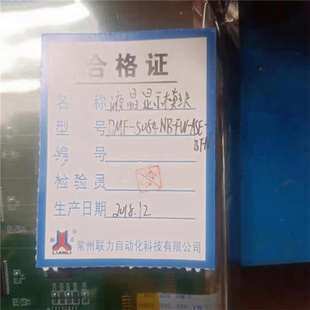 合格证
名称 液晶显示模块
型号 DMF-5054NB-FW-ASE-BFN
编号
检验员
生产日期 2018.12
常州联力自动化科技有限公司